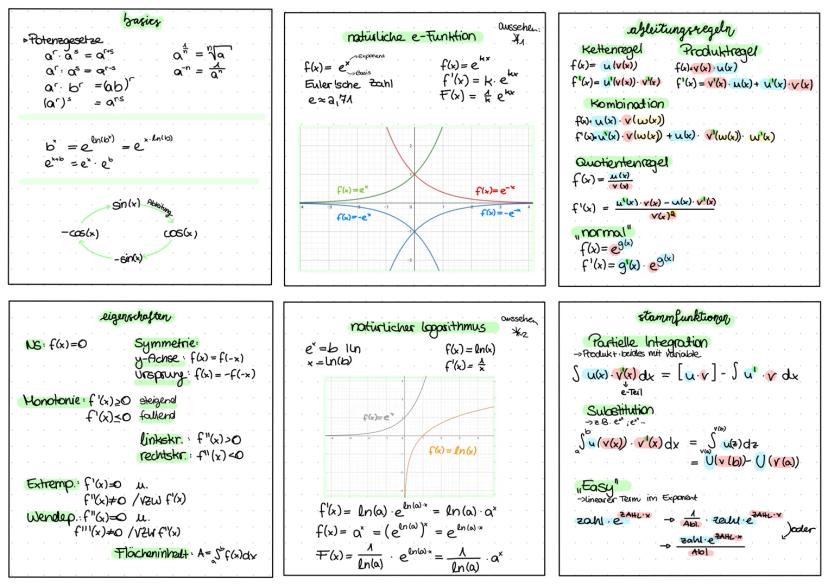 basics
Potenzgesetze
a^r · a^s = a^(r+s)
a^r · a^s = a^(r-s)
a^r · b^r = (ab)^r
(a^r)^s = a^(r·s)
a^(1/n) = ⁿ√a
a^(-n) = 1/a^n
b^x = e^(ln(b^x)) = e^(x·ln(b))
e^(x+b) = e^x · e^b
sin(x)
Ableitung
-cos(x)
cos(x)
-sin(x)
natürliche e-Funktion
aussehen:
*1
f(x) = e^x
Exponent
Basis
Euler'sche Zahl
e ≈ 2,71
f(x) = e^(kx)
f'(x) = k · e^(kx)
F(x) = 1/k e^(kx)
f(x) = e^x
f(x) = e^(-x)
f(x) = -e^x
f(x) = -e^(-x)
ableitungsregeln
Kettenregel
f(x) = u(v(x))
f'(x) = u'(v(x)) · v'(x)
Produktregel
f(x) = v(x) · u(x)
f'(x) = v'(x) · u(x) + u'(x) · v(x)
Kombination
f(x) = u(x) · v(w(x))
f'(x) = u'(x) · v(w(x)) + u(x) · v'(w(x)) · w'(x)
Quotientenregel
f(x) = u(x)/v(x)
f'(x) = (u'(x) · v(x) - u(x) · v'(x))/v(x)²
„normal"
f(x) = e^(g(x))
f'(x) = g'(x) · e^(g(x))
eigenschaften
NS: f(x) = 0
Symmetrie:
y-Achse: f(x) = f(-x)
Ursprung: f(x) = -f(-x)
Monotonie: f'(x) ≥ 0 steigend
f'(x) ≤ 0 fallend
linkskr.: f''(x) > 0
rechtskr.: f''(x) < 0
Extremp.: f'(x) = 0 u.
f''(x) ≠ 0 /VZW f'(x)
Wendep.: f''(x) = 0 u.
f'''(x) ≠ 0 /VZW f''(x)
Flächeninhalt: A = ∫_a^b f(x) dx
natürlicher logarithmus
aussehen
*2
e^x = b | ln
x = ln(b)
f(x) = ln(x)
f'(x) = 1/x
f(x) = e^x
f(x) = ln(x)
f'(x) = ln(a) · e^(ln(a)·x) = ln(a) · a^x
f(x) = a^x = (e^(ln(a)))^x = e^(ln(a)·x)
F(x) = 1/ln(a) · e^(ln(a)·x) = 1/ln(a) · a^x
stammfunktionen
Partielle Integration
→ Produkt - beides mit Variable
∫ u(x) · v'(x) dx = [u · v] - ∫ u' · v dx
e-Teil
Substitution
∫_a^b u(v(x)) · v'(x) dx = ∫_v(a)^v(b) u(z) dz
= U(v(b)) - U(v(a))
„Easy"
→ linearer Term im Exponent
zahl · e^(ZAHL·x) → 1/Abl. · zahl · e^(ZAHL·x)
oder
→ zahl · e^(ZAHL·x)/Abl